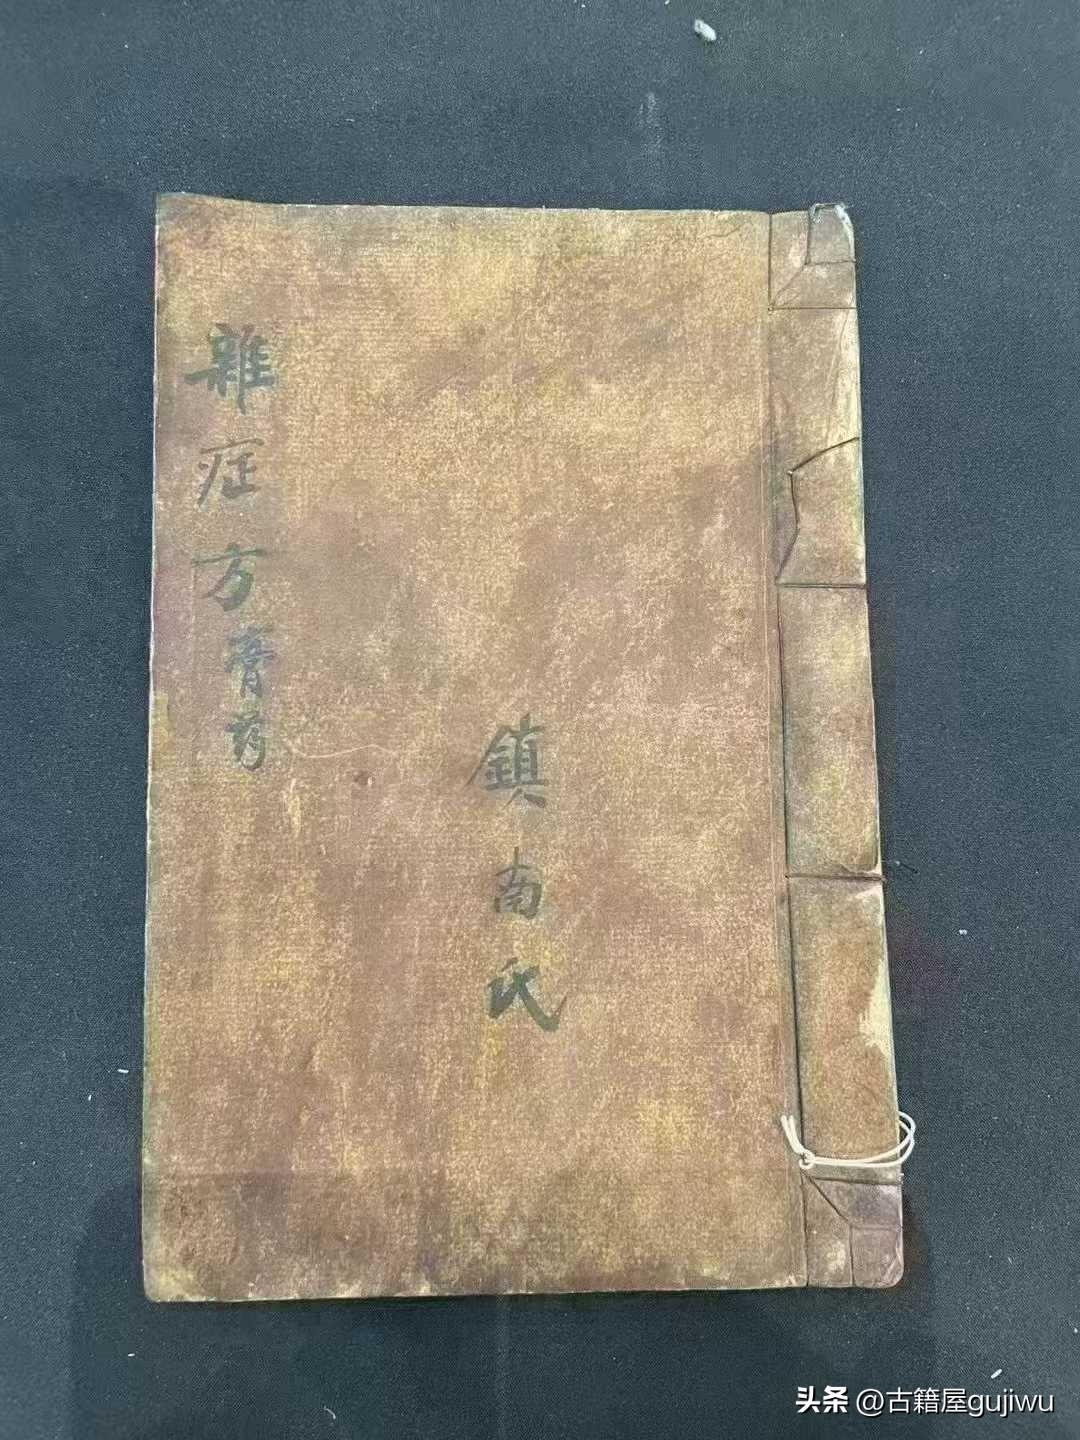 雜症方膏药
鎮南氏
头条 @古籍屋gujiwu